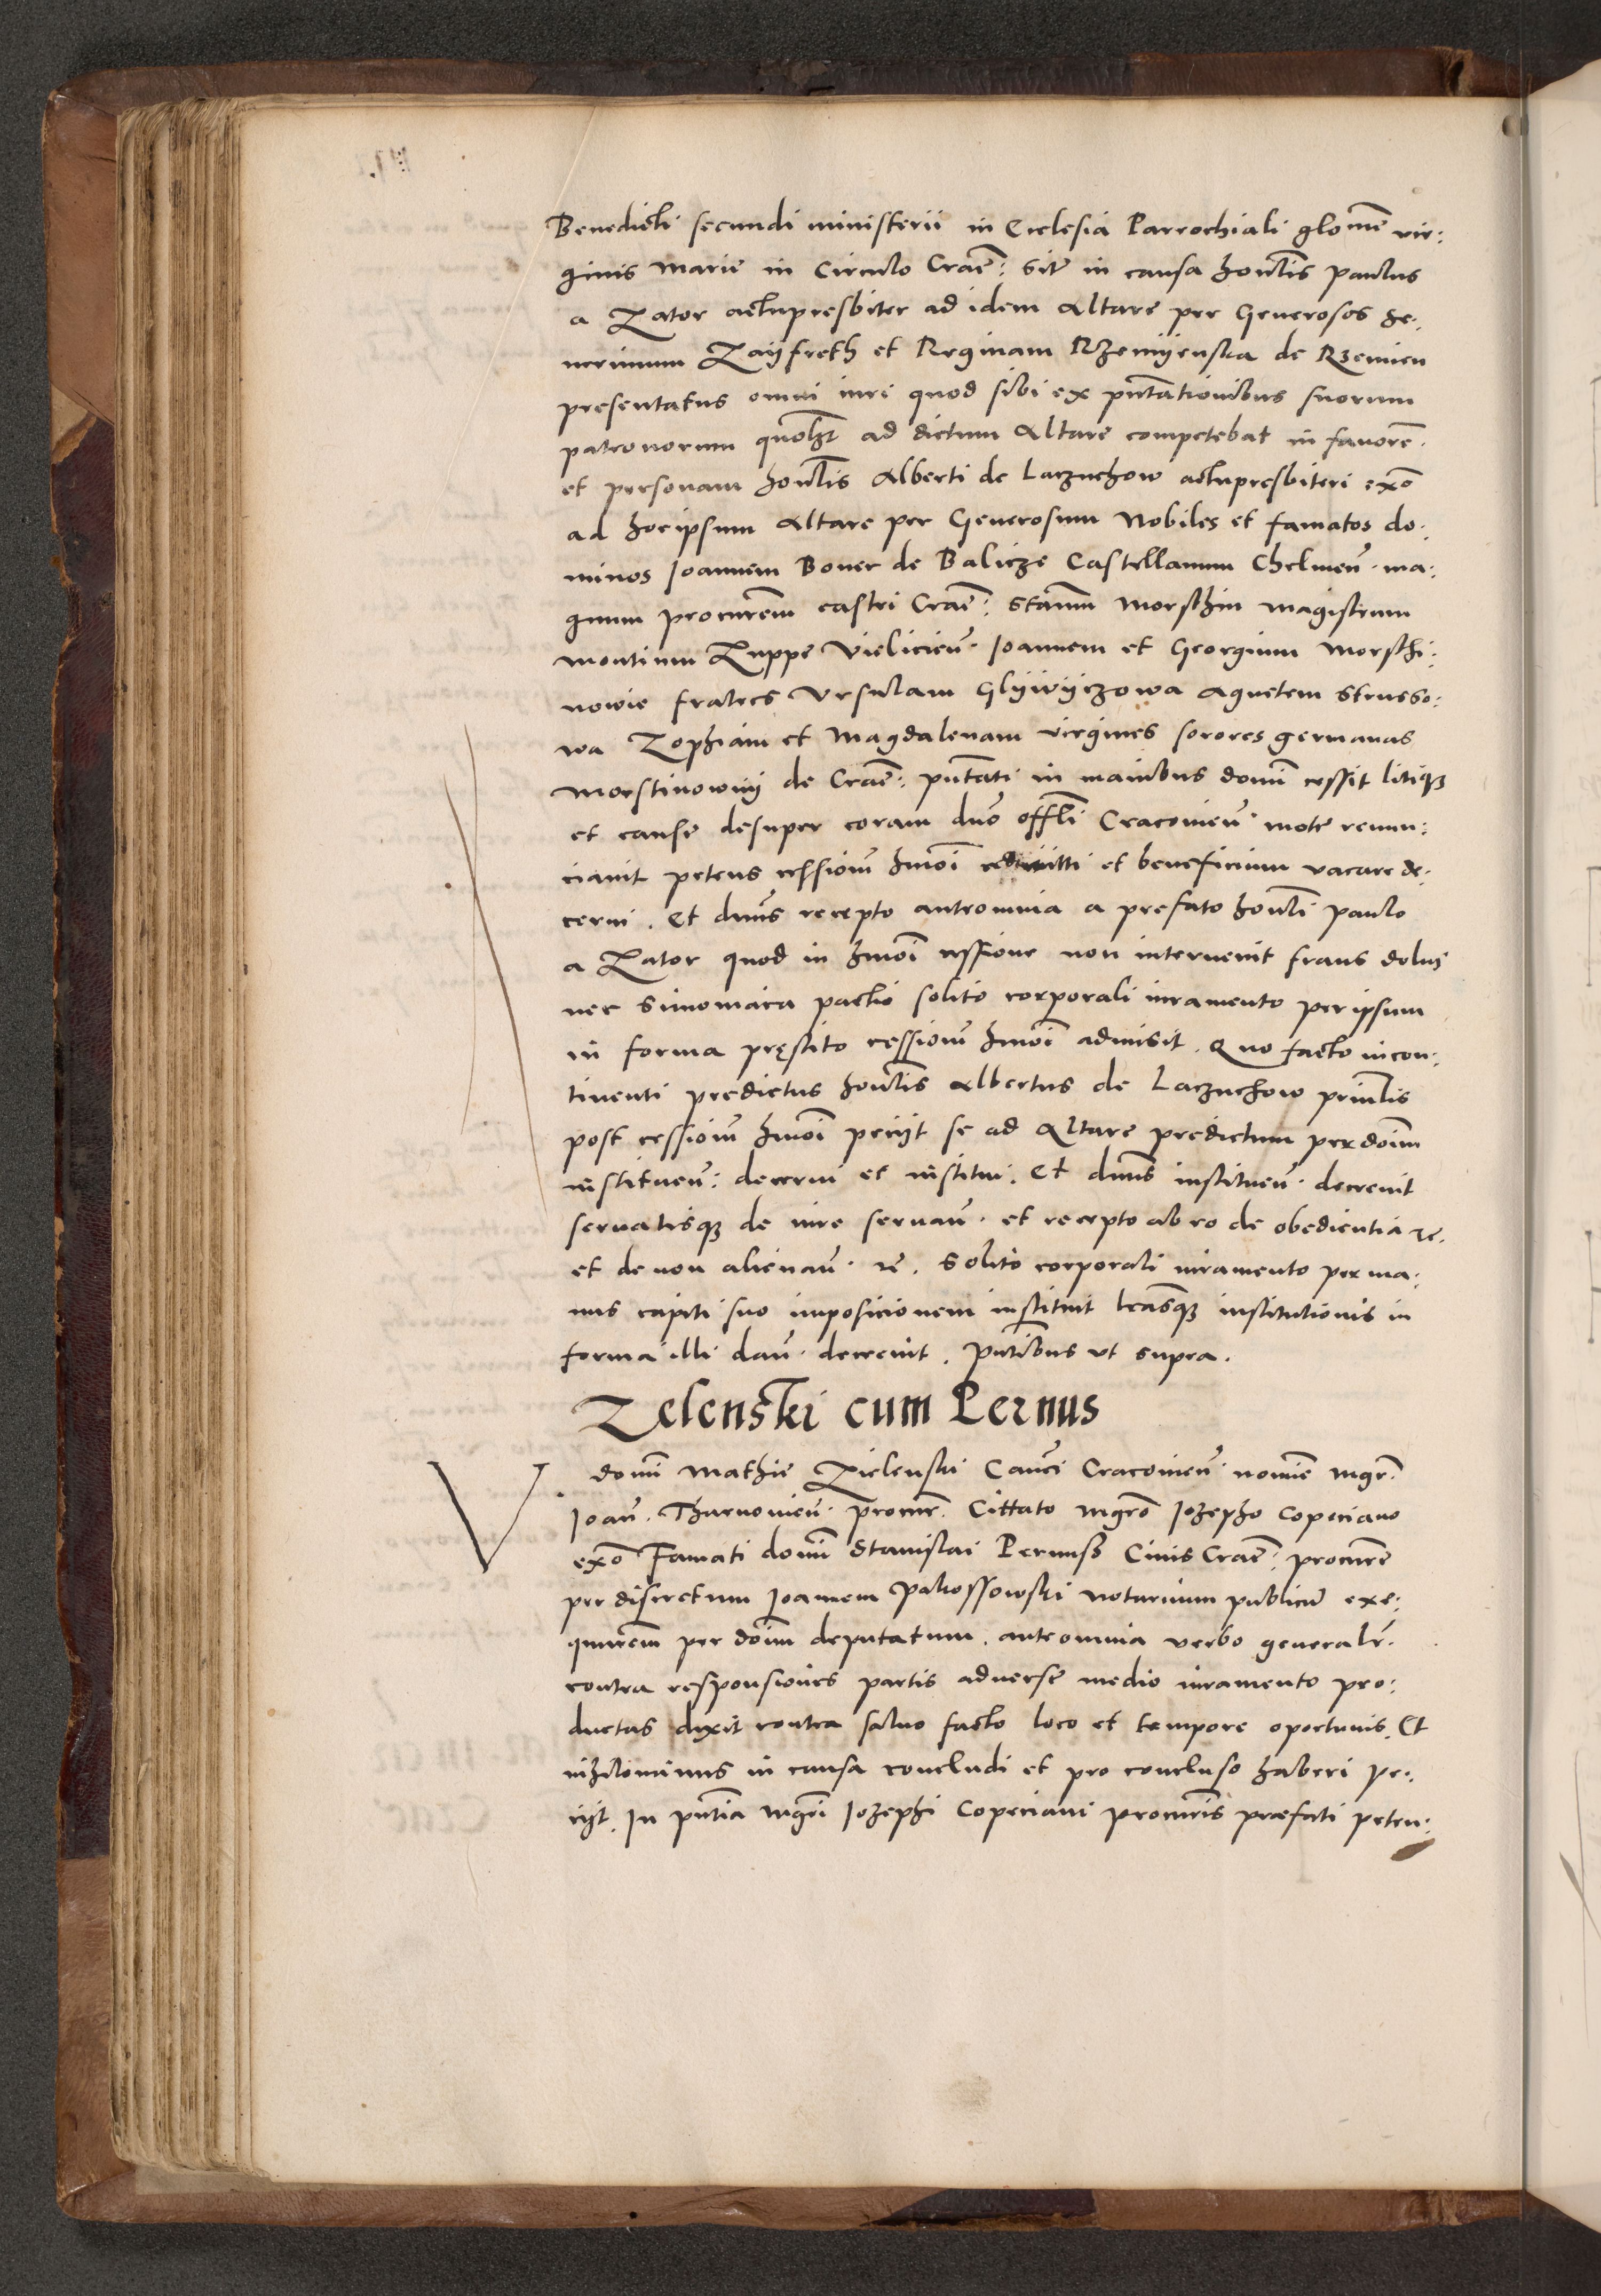 Benedicti secundi ministerii in Ecclesia Parrochiali glome vir:
ginis Marie in Circulo Crae: site in causa honlis paulus
a Zator actupresbiter ad idem Altare per Generosos Se:
uerinum Zayfreth et Reginam Rzemyenska de Rzemien
presentatus omni iuri quod sibi ex pntationibus suorum
patronorum quolzt ad dictum Altare competebat in fauore
et personam honlis Alberti de Laczuchow actupresbiteri exo
ad hocipsum Altare per Generosum Nobiles et famatos do:
minos Joannem Boner de Balicze Castellanum Chelmen ma:
gnum procurem castri Crae: Stanm Morsthin magistrum
montium Zuppe Vielicien Joannem et Georgium Morsthi:
nowie fratres Vrsulam Glywyczowa Agnetem Strusso:
wa Zophiam et Magdalenam virgines sorores germanas
Morstinowny de Crae: pntati in manibus domi cessit litiqz
et cause desuper coram duo offli Cracouien mote renun:
ciauit petens cessionem hmoi admitti et beneficium vacare de:
cerni. Et dnus recepto anteomnia a prefato honli paulo
a Zator quod in hmoi cessione non interuenit fraus dolus
nec Simoniaca pactio solito corporali iuramento per ipsum
in forma pręstito cessionem hmoi admisit. Quo facto incon:
tinenti predictus honlis Albertus de Laczuchow prinlis
post cessionem hmoi peciit se ad Altare predictum per doim
instituen: decerni et institui. Et dnus instituen decreuit
seruatisqz de iure seruan et recepto ab eo de obedientia rc.
et de non alienan rc. Solito corporali iuramento per ma:
nus capiti suo imposicionem instituit lrasqz institutionis in
forma illi dan decreuit. Pntibus vt supra.
Zelenski cum Pernus
domi Mathie Zielenski Canci Cracouien nomie mgr
Joan. Tharnouien procur. Cittato mgro Jozepho Copeciano
exo Famati domi Stanislai Pernuss Ciuis Crae: procure
per discretum Joannem Pakossowski notarium publicu exe:
qutorem per doim deputatum. anteomnia verbo generalr
contra responsiones partis aduerse medio iuramento pro:
ductas dixit contra saluo facto loco et tempore oportunis. Et
nihilominus in causa concludi et pro concluso haberi pe:
ciit. In pntia mgri Jozephi Copeciani procuris præfati peten: